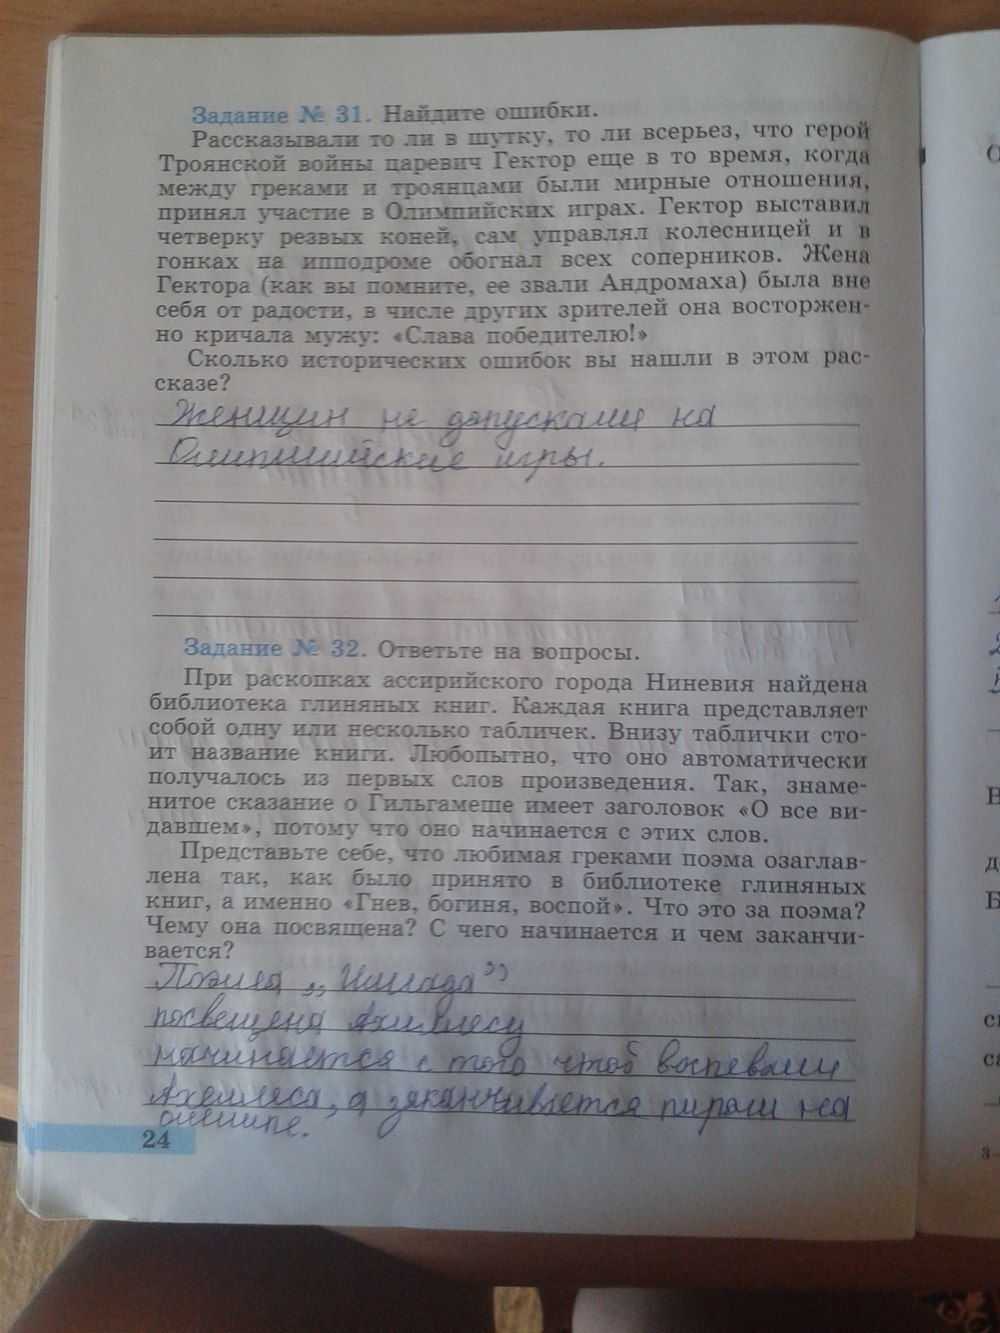 Задание № 31. Найдите ошибки.
Рассказывали то ли в шутку, то ли всерьез, что герой
Троянской войны царевич Гектор еще в то время, когда
между греками и троянцами были мирные отношения,
принял участие в Олимпийских играх. Гектор выставил
четверку резвых коней, сам управлял колесницей и в
гонках на ипподроме обогнал всех соперников. Жена
Гектора (как вы помните, ее звали Андромаха) была вне
себя от радости, в числе других зрителей она восторжен-
но кричала мужу: «Слава победителю!»
Сколько исторических ошибок вы нашли в этом рас-
сказе?
Женщин не допускали на
Олимпийские игры.
Задание № 32. Ответьте на вопросы.
При раскопках ассирийского города Ниневия найдена
библиотека глиняных книг. Каждая книга представляет
собой одну или несколько табличек. Внизу таблички сто-
ит название книги. Любопытно, что оно автоматически
получалось из первых слов произведения. Так, знаме-
нитое сказание о Гильгамеше имеет заголовок «О все ви-
давшем», потому что оно начинается с этих слов.
Представьте себе, что любимая греками поэма озаглав-
лена так, как было принято в библиотеке глиняных
книг, а именно «Гнев, богиня, воспой». Что это за поэма?
Чему она посвящена? С чего начинается и чем заканчи-
вается?
Поэма „Иллада”
посвещена Ахиллесу
начинается с того чтоб воспевали
Ахеллеса, а заканчивается пиром на
олимпе.
24